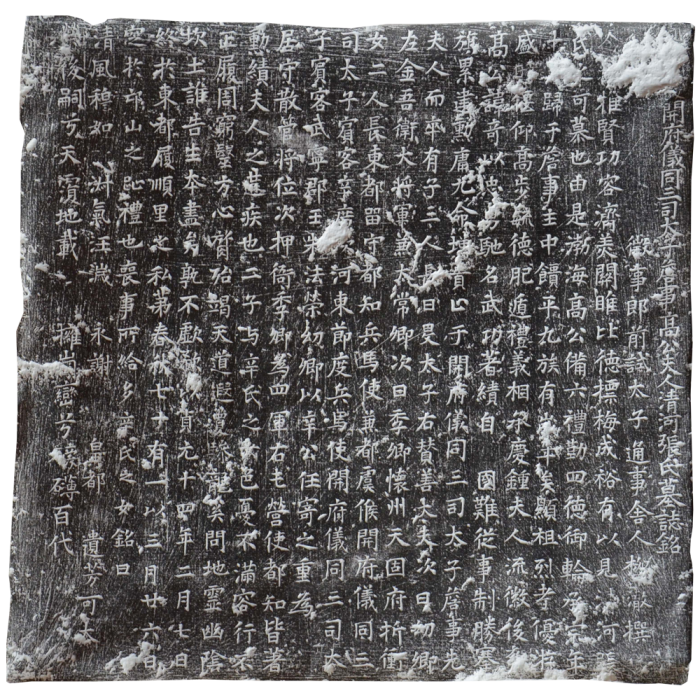 開府儀同三司太子詹事高公夫人清河張氏墓誌銘
徵事郎前試太子通事舍人 撰
雅賢功容濟美關雎比德摽梅成裕有以見清河張
氏可慕也由是渤海高公備六禮勤四德御輪 年
十 歸于詹事主中饋平九族有 年矣顯祖烈考優游
盛 仰高 德肥遁禮義相承慶鍾夫人流徽後
高公諱奇 馳名武功著績自 國難從事制勝塞
旗累書勳庸九命 于開府儀同三司太子詹事先
夫人而卒有子三人長曰旻太子右贊善大夫次曰幼卿
左金吾衛大將軍兼太常卿次曰季卿懷州天固府折衝
女二人長東都留守都知兵馬使兼都虞候開府儀同三
司太子賓客辛 河東節度兵馬使開府儀同三司太
子賓客武寧郡王 法榮幼卿以辛公任寄之重為
居守散管將位次押衙季卿為 軍右老營使都知皆著
勳績夫人之遘疾也二子与辛氏之 色憂不滿容行不
正履周窮醫方心 殆竭天道遐遠 問地靈幽陰
坎土誰告生本盡 乾不歇 貞元十四年二月七日
終於東都履順里之私弟春秋七十有一以三月廿六日
窆於邙山之 禮也喪事所給多辛氏之女銘曰
清風穆如 淑氣汪濊 永謝 皇都 遺芳可大
後嗣 天 地載 芳 百代